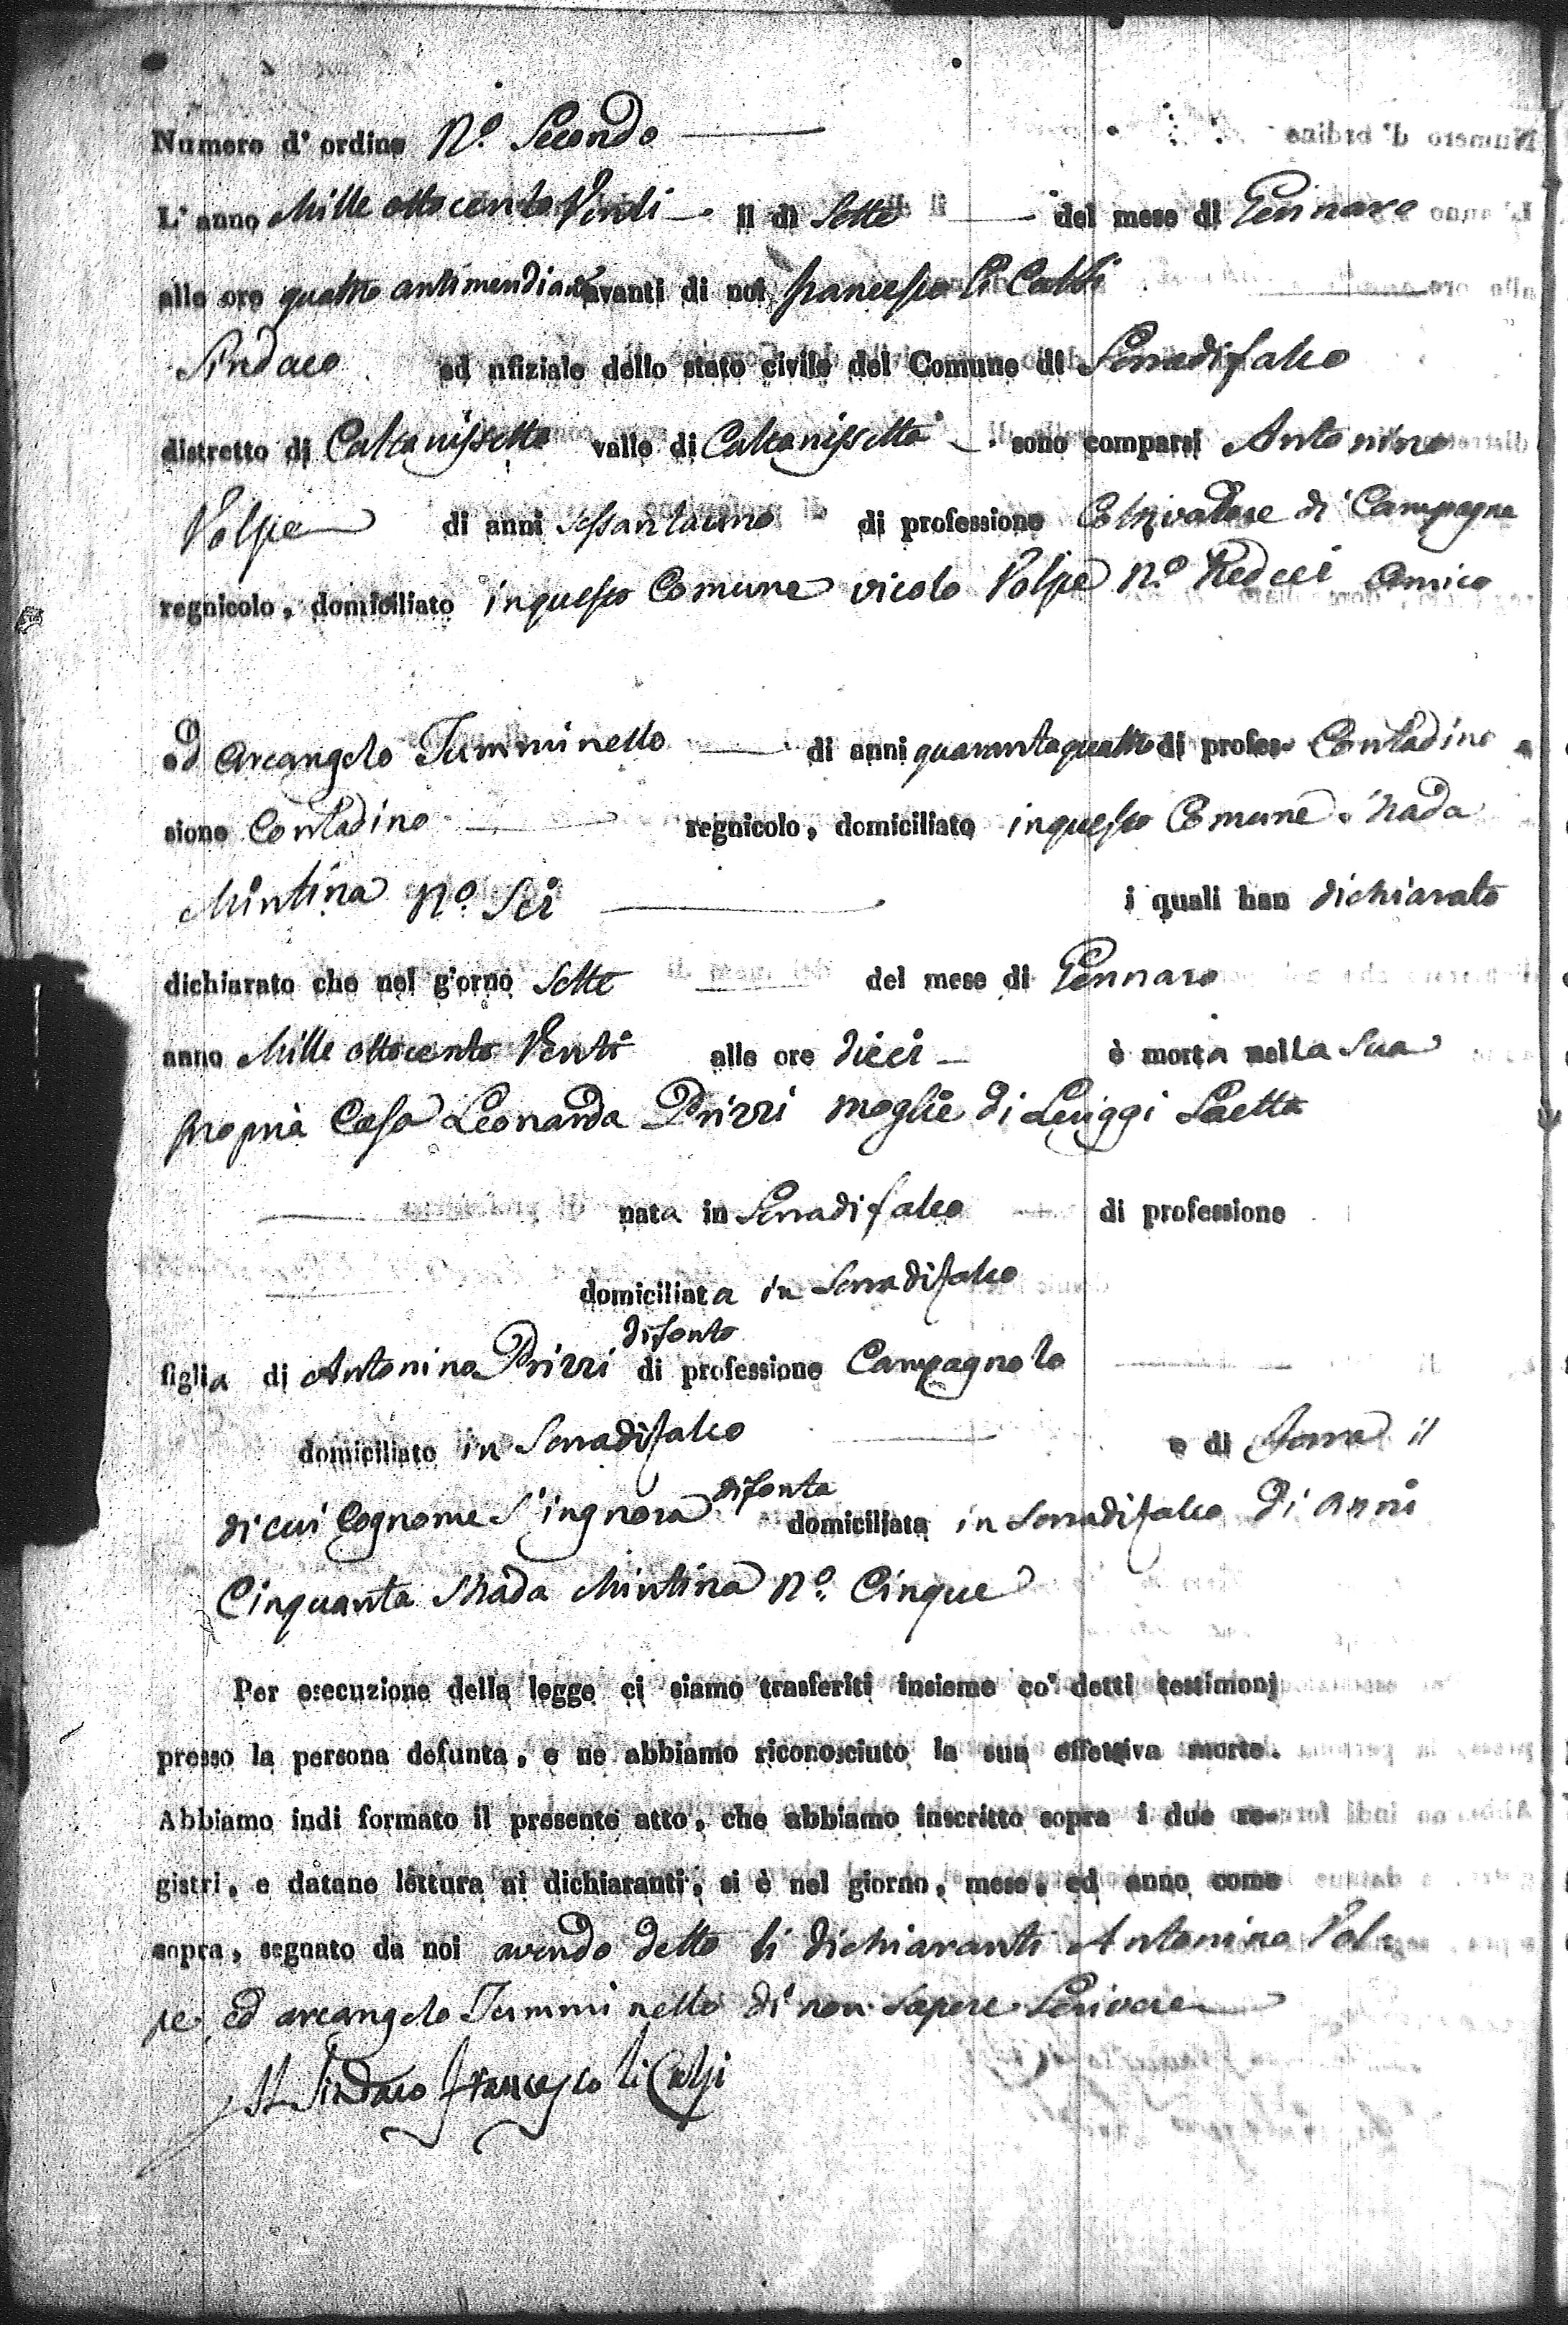 Numero d' ordine N.º Secondo
L' anno Mille ottocento Venti il dì Sette del mese di Gennaro
alle ore quattro antimeridiane avanti di noi francesco li Calsi
Sindaco ed ufiziale dello stato civile del Comune di Serradifalco
distretto di Caltanissetta valle di Caltanissetta sono comparsi Antonino
Volpe di anni sessantauno di professione Coltivatore di Campagna
regnicolo, domiciliato in questo Comune vicolo Volpe N.º
ed Arcangelo Tumminello di anni quarantaquattro di profes- Contadino
sione Contadino regnicolo, domiciliato in questo Comune strada
Mintina N.º Sei i quali han dichiarato
dichiarato che nel giorno Sette del mese di Gennaro
anno Mille ottocento Venti alle ore dieci è morta nella Sua
propria Casa Leonarda Prizzi moglie di Luiggi Saetta
nata in Serradifalco di professione
domiciliata in Serradifalco
difonto
figlia di Antonino Prizzi di professione Campagnolo
domiciliato in Serradifalco e di Anna il
difonta
di cui Cognome S'ingnora domiciliata in Serradifalco di anni
Cinquanta strada Mintina N.º Cinque
Per esecuzione della legge ci siamo trasferiti insieme co' detti testimonj
presso la persona defunta, e ne abbiamo riconosciuto la sua effettiva morte.
Abbiamo indi formato il presente atto, che abbiamo inscritto sopra i due re-
gistri, e datane lettura ai dichiaranti, si è nel giorno, mese, ed anno come
sopra, segnato da noi avendo detto li dichiaranti Antonino Vol-
pe, ed arcangelo Tumminello di non sapere Scrivere
Il Sindaco Francesco li Calsi